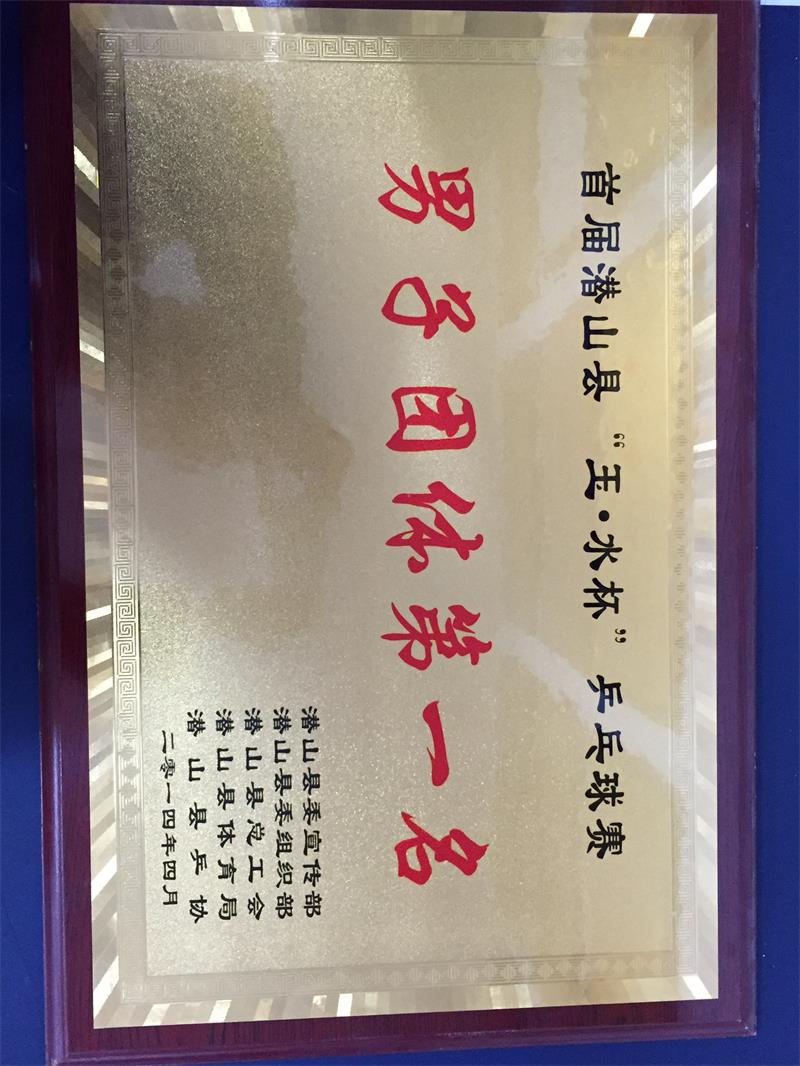 首届潜山县“玉·水杯”乒乓球赛
男子团体第一名
潜山县委宣传部
潜山县委组织部
潜山县总工会
潜山县体育局
潜山县乒协
二零一四年四月